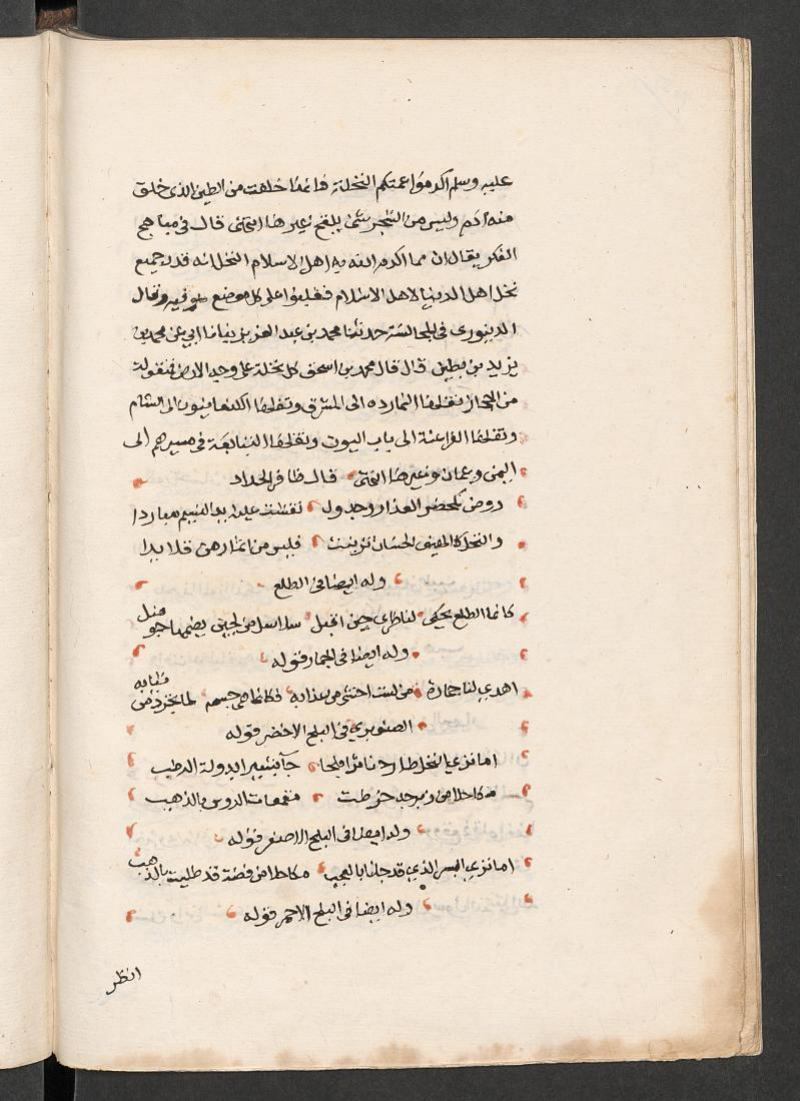 عليه وسلم اكرموا عمتكم النخلة فانها خلقت من الطين الذى خلق
منه ادم وليس من الشجر شئ يلقح غيرها انتهى قال فى مباهج
الفكر يقال ان مما اكرم الله به اهل الاسلام النخل انه قدر جميع
نخل اهل الدنيا لاهل الاسلام فغلبوا على كل موضع هو فيه وقال
الدينورى فى المجالسة حدثنا محمد بن عبد العزيز نبانا ابي عن محمد بن
يزيد بن قال قال محمد بن اسحق كل نخلة على وجه الارض فمنقولة
من الحجاز نقلها النمارده الى المشرق ونقلها الكنعانيون الى الشام
ونقلها الفراعنة الى باب اليوت ونقلها التبابعة فى مسيرهم الى
اليمن وعمان وغيرها انتهى قال ظافر الحداد
روض كمخضر العذار وجدول نقشت عليه يد النسيم مباردا
والنخل كالهيف الحسان تزينت فلبسن من اثمارهن قلايدا
وله ايضا فى الطلع
كانما الطلع يحكي لناظرى حين اقبل سلاسل من لجين يضمها صندل
وله ايضا فى الجمار قوله
اهدي لنا جمارة من لست اخشى من عذابه فكانما هى جسمه لما تجرد من ثيابه
الصنوبري فى البلح الاخضر قوله
اما ترى النخل طارحنا بلحا جا بشير الدولة الرطب
مكاحلا من زبرجد خرطت مقمعات الروس بالذهب
وله ايضا فى البلح الاصفر قوله
اما ترى البسر الذي قد جانا بالعجب مكاحلا من فضة قد طليت بالذهب
وله ايضا فى البلح الاحمر قوله
انظر